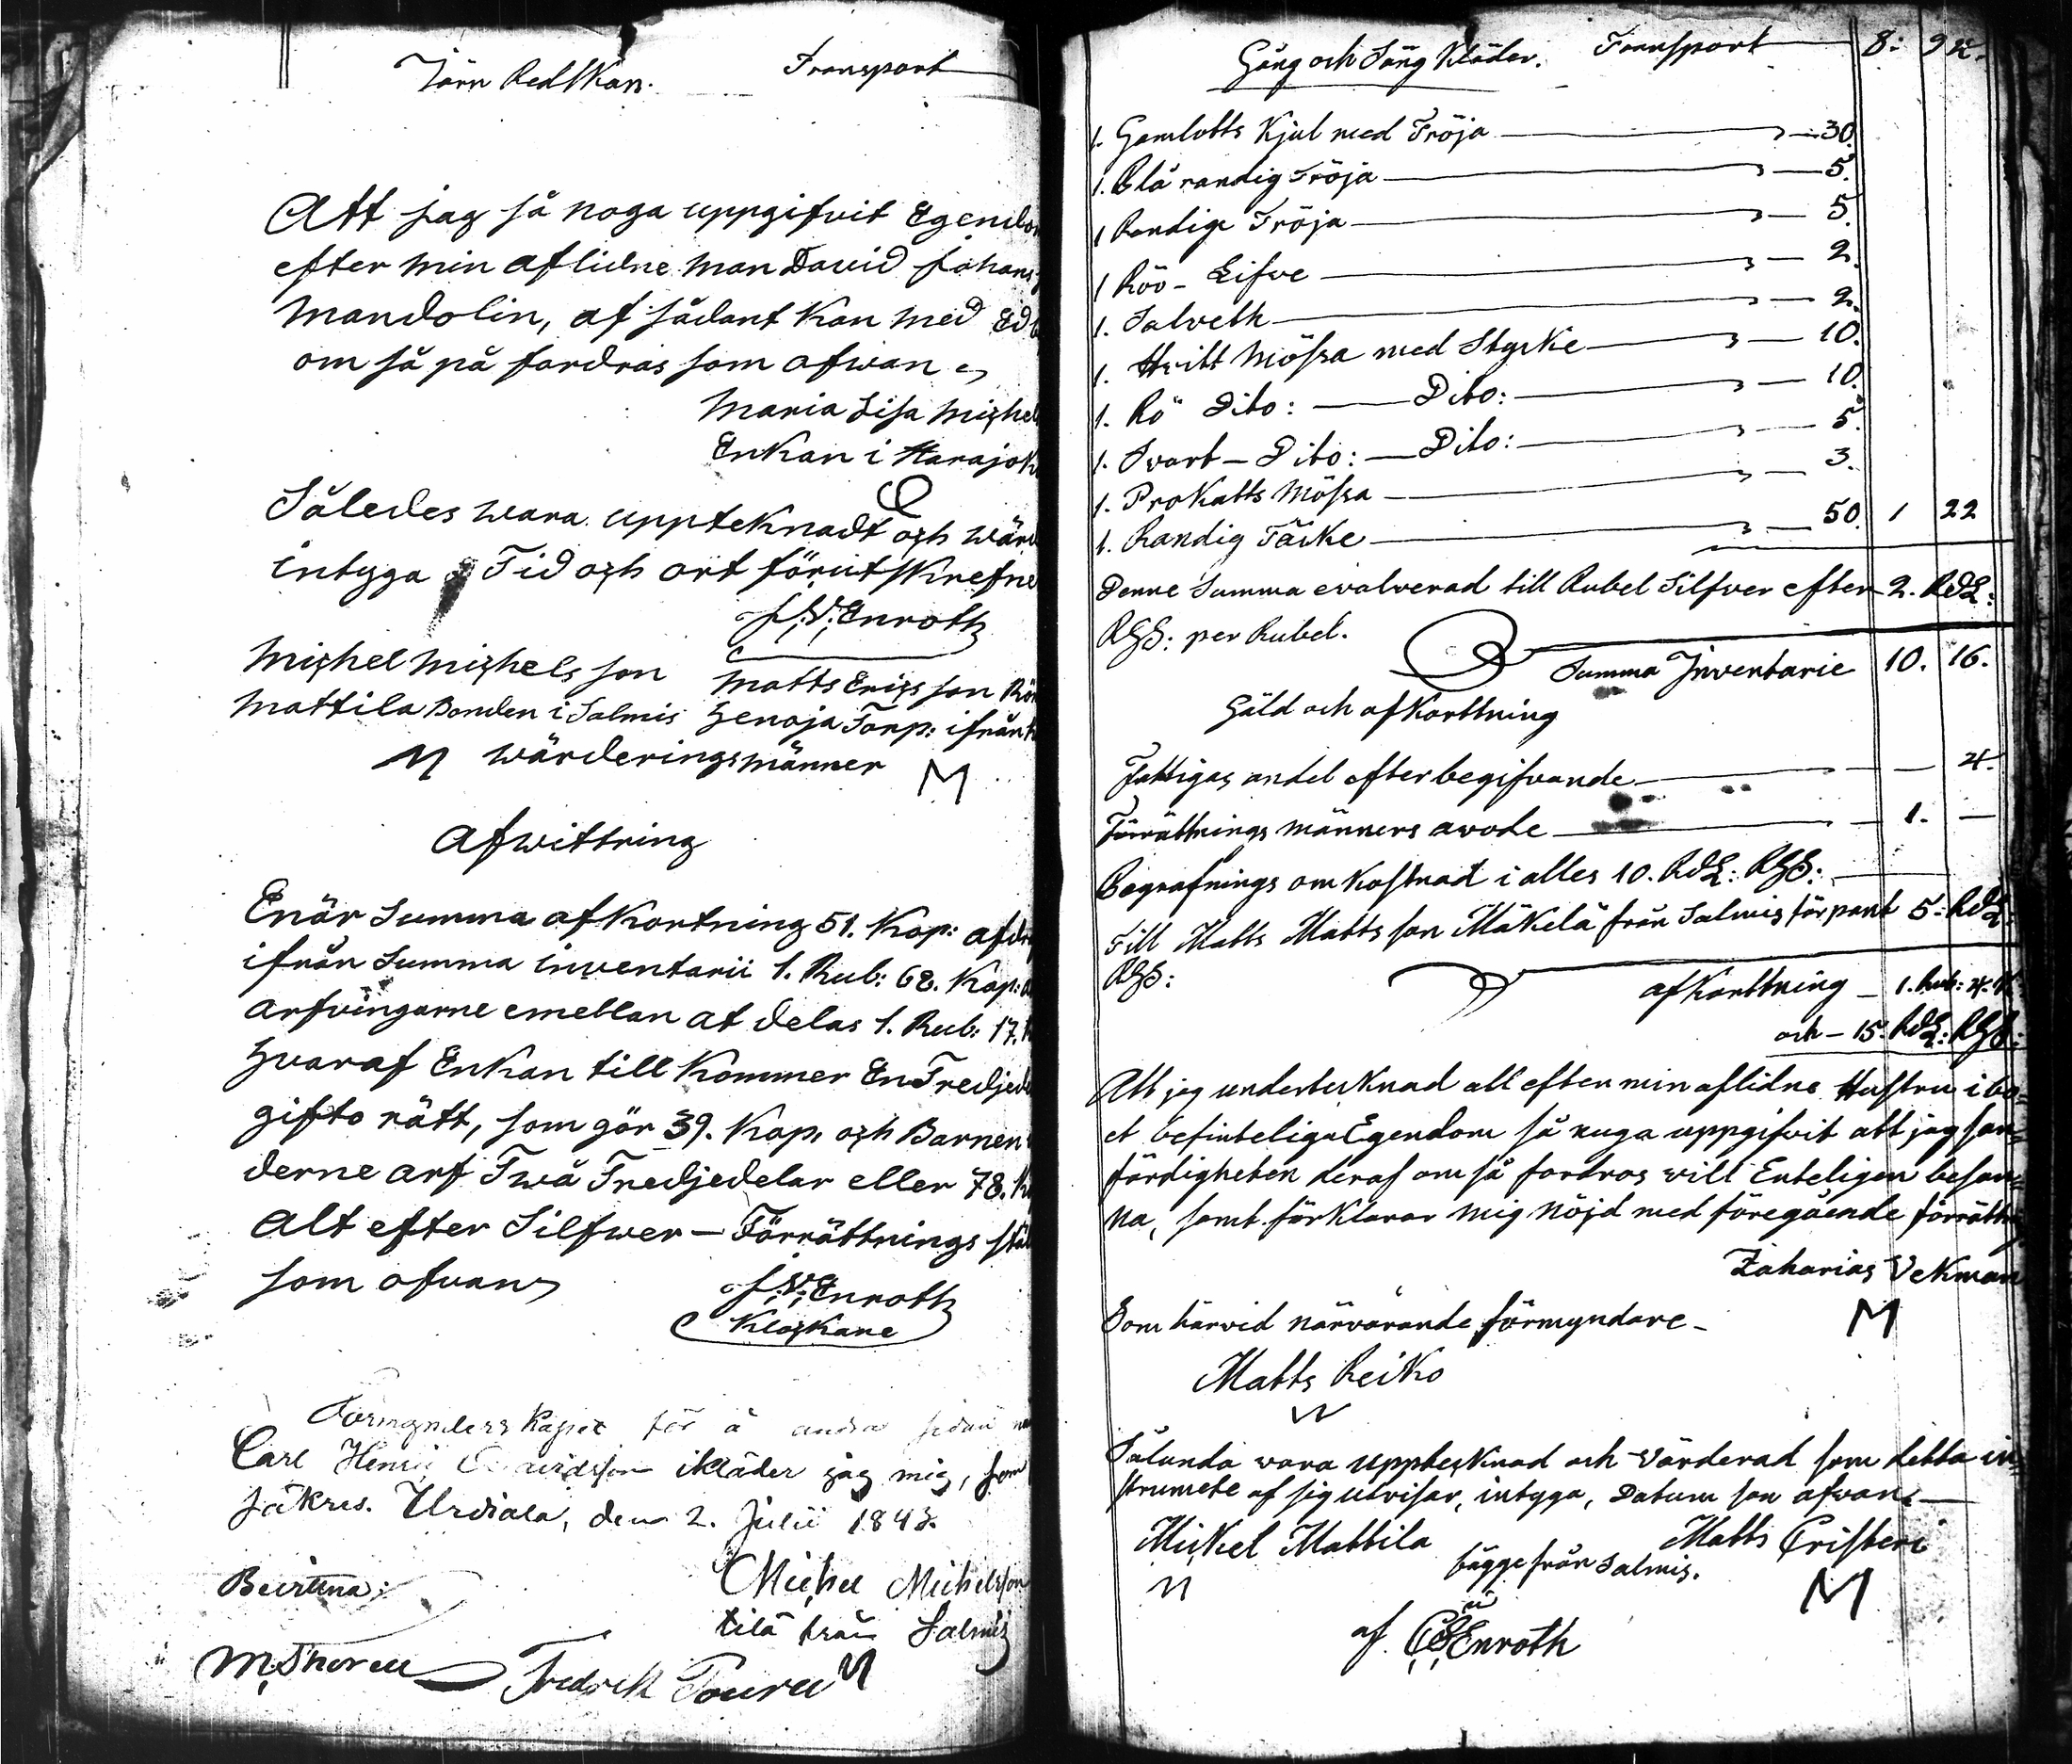 Järn Redskan. Transport
Att jag så noga uppgifvit Egendom
efter min aflidne man David Johans
Mandolin, af sådant kan med Ed b
om så på fordras som ofwan
Maria Lisa Michels
Enkan i Harajok
Således wara uppteknadt och wärd
intyga Tid och ort förut skrefne
J. V. Enroth
Michel Michelsson Matts Ericsson Rö
Mattila Bonden i Salmis Henoja Torp: ifrån
wärderingsmänner
Afwittring
Enär Summa afkortning 51. Kop: afdr
ifrån Summa inventarii 1. Rub: 68. Kop:
arfvingarne emellan at delas 1. Rub: 17.
hvaraf Enkan till kommer En Tredjed
gifto rätt, som gör 39. Kop. och Barnen
derne arf Twå Tredjedelar eller 78. K
Alt efter Silfwer – Förrättnings stäl
som ofvan
J. V. Enroth
Klockane
Förmynderskapet för å andra sidan
Carl Henric Davidsson ikläder jag mig, som
säkres. Urdiala, den 2. Julii 1843.
Michel Michelsson
Bevittna: tilä från Salmis
M. Thoren Fredrik
Gång och Säng Kläder. Transport 8: 94.
1. Gamlotts Kjol med Tröja 30.
1. Blå randig Tröja 5.
1 Randige Tröja 5.
1 Röö- Lifve 2.
1. Salveth 2.
1. Hvitt Mössa med Stycke 10.
1. Rö Dito: Dito: 10.
1. Svart – Dito: Dito: 5.
1. Prokatts Mössa 3.
1. Randig Täcke 50. 1 22
Denne Summa evalverad till Rubel Silfver efter 2. RdL:
RGS: per Rubel.
Summa Inventarie 10. 16.
Gäld och afkorttning
Fattigas andel efter begifvande — 4.
Förrättnings männers arvode 1. —
Begrafnings omkostnad i alles 10. RdL: RGS:
Till Matts Mattsson Mäkelä från Salmis för pant 5: RdL:
RGS:
afkorttning – 1. Rub: 4. K
och – 15. RdL: RGS:
Att jag undertecknad all efter min aflidne Hustru i bo=
et befinteliga Egendom så nuga uppgifvit att jag san=
färdigheten deraf om så fordras will Enteligen besan=
na, samt förklarar mig nöjd med föregående förrättning
Zaharias Vekman
Som härvid närvarande förmyndare –
Matts Reiko
Sålunda vara uppteknad och Värderad som detta in=
strumete af sig utvisar, intyga, Datum son ofvan –
Mickel Mattila Matts Cristeri
bägge från Salmis.
af C G Enroth